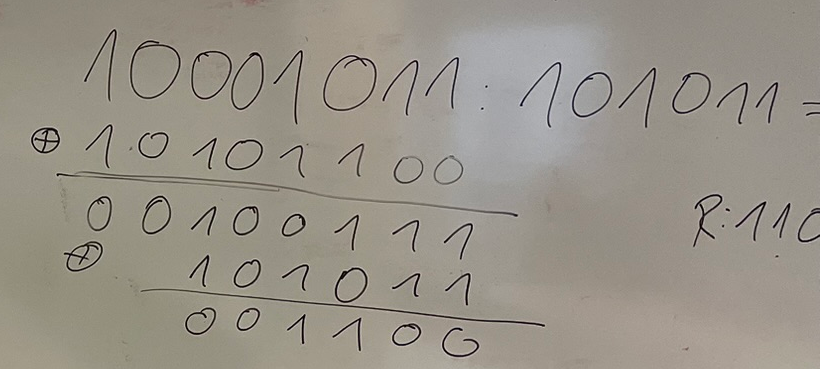 10001011 : 101011 =
⊕ 10101100
00100111
R: 110
⊕ 101011
001100